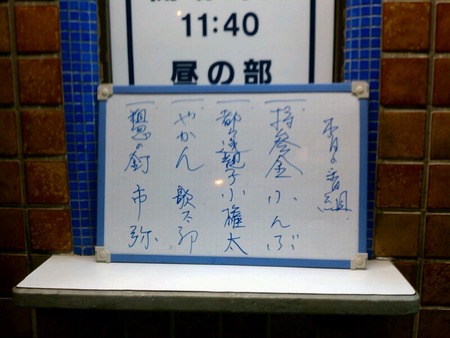 11:40
昼の部
本日の番組
持参金 小んぶ
都々逸親子 小権太
やかん 歌太郎
粗忽の釘 市弥